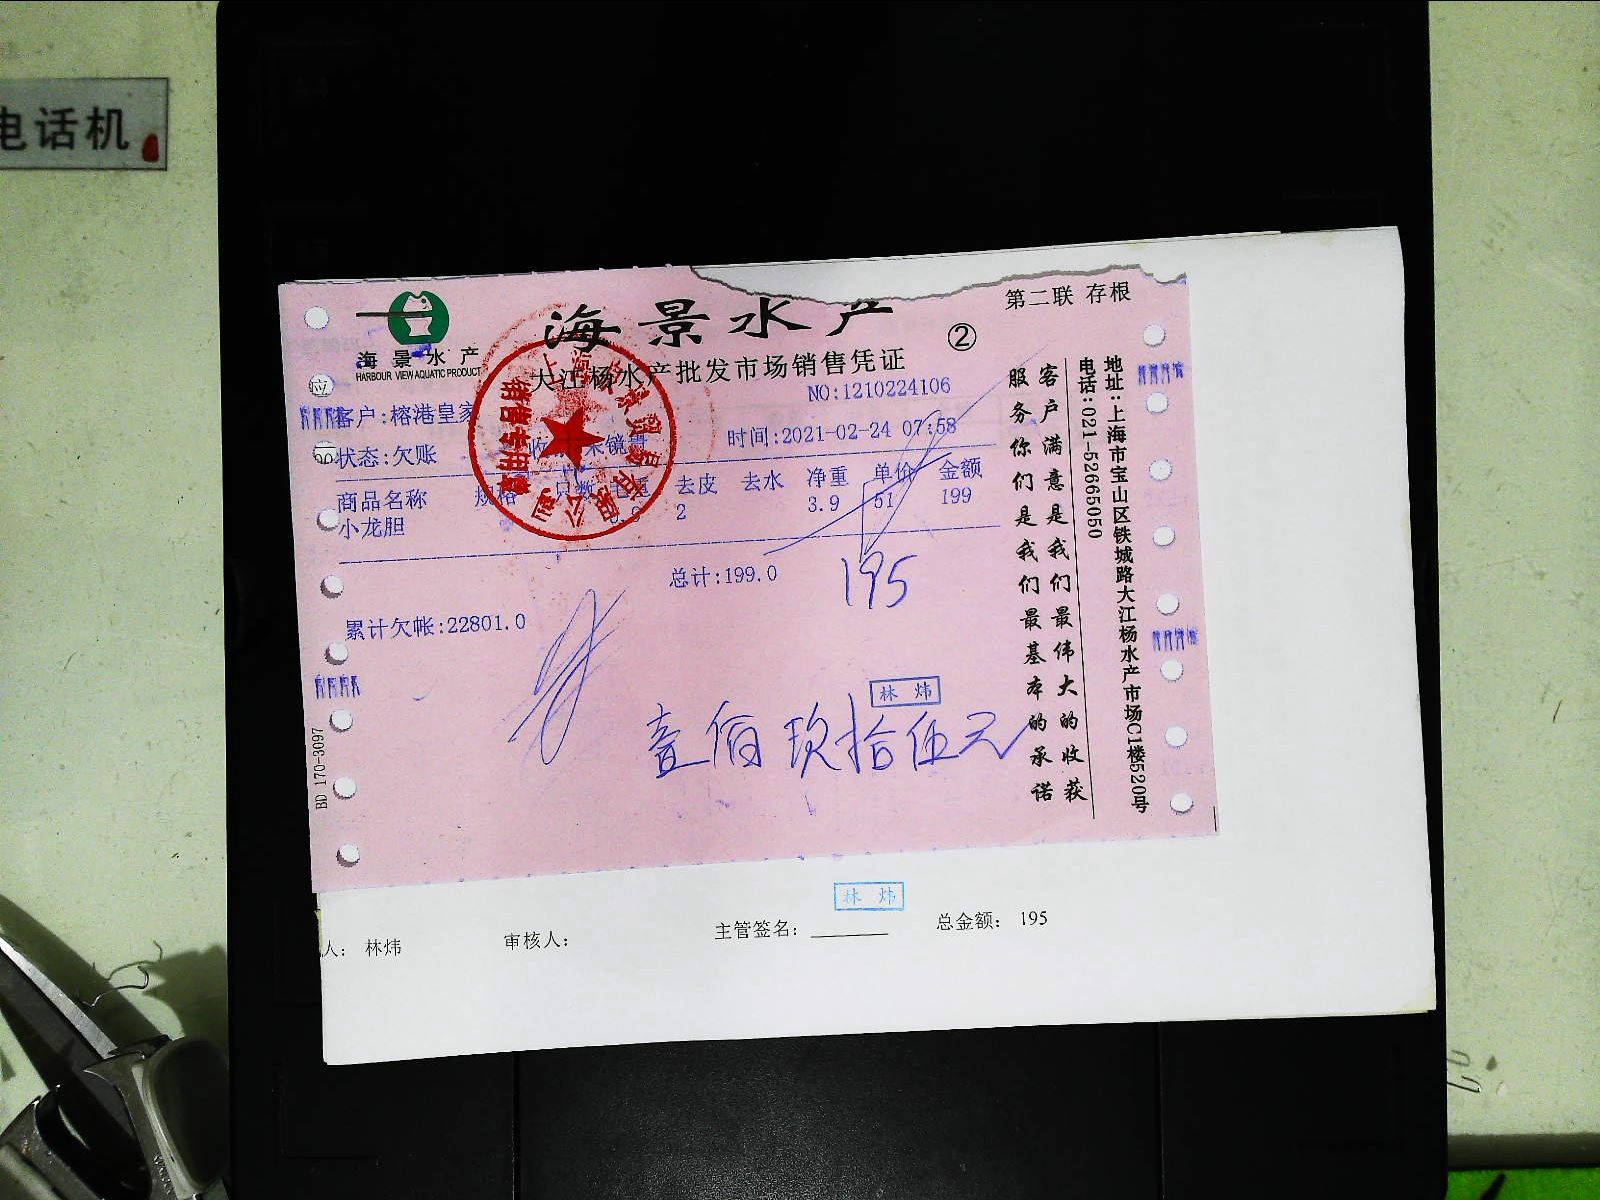 电话机
第二联 存根
海景水产
海景水产
HARBOUR VIEW AQUATIC PRODUCT
大江杨水产批发市场销售凭证
②
NO:1210224106
客户:榕港皇家
时间:2021-02-24 07:58
状态:欠账
商品名称 规格 只数 毛重 去皮 去水 净重 单价 金额
小龙胆 2 3.9 51 199
总计:199.0
195
累计欠帐:22801.0
林炜
壹佰玖拾伍元
销售专用章
客户满意是我们最伟大的收获
服务你们是我们最基本的承诺
地址:上海市宝山区铁城路大江杨水产市场C1楼520号
电话:021-52665050
BD 170-3097
林炜
人: 林炜 审核人: 主管签名: 总金额: 195